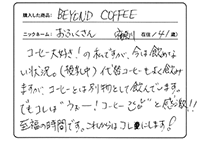 購入した商品： BEYOND COFFEE
ニックネーム： おふくさん 在住（41歳）
コーヒー大好き！の私ですが、今は飲めな
い状況。（授乳中）代替コーヒーもよく飲み
ますが、コーヒーとは別物として飲んでいます。
でもコレは"うおー！コーヒー"と感激!!
至福の時間です。これからはコレにします！